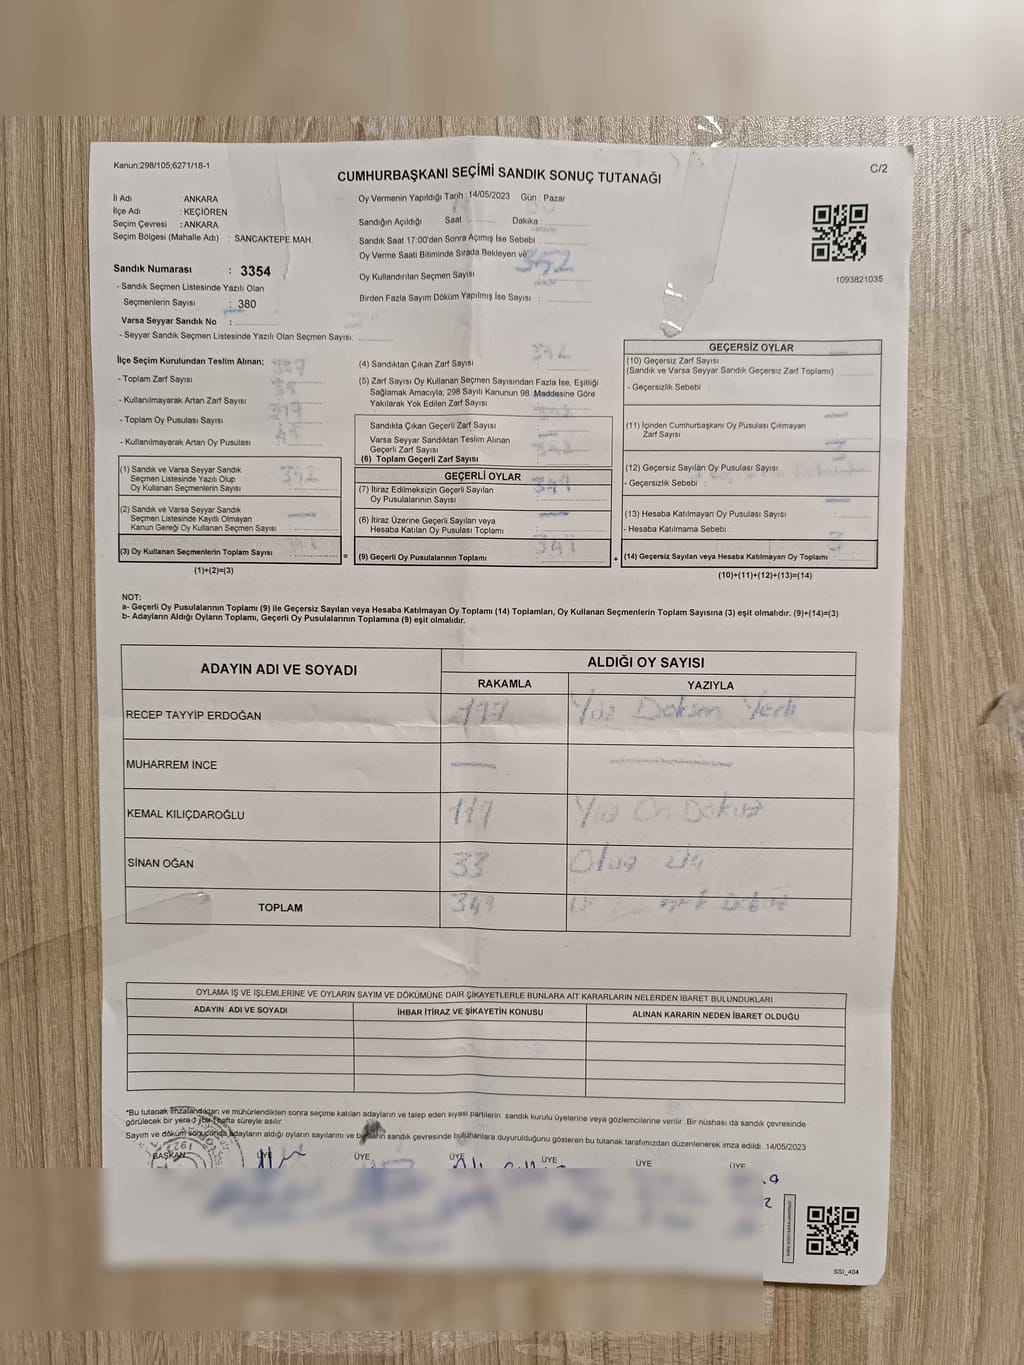 Kanun;298/105;6271/18-1
C/2
CUMHURBAŞKANI SEÇİMİ SANDIK SONUÇ TUTANAĞI
İl Adı : ANKARA
İlçe Adı : KEÇİÖREN
Seçim Çevresi : ANKARA
Seçim Bölgesi (Mahalle Adı) : SANCAKTEPE MAH.
Sandık Numarası : 3354
- Sandık Seçmen Listesinde Yazılı Olan
Seçmenlerin Sayısı : 380
Varsa Seyyar Sandık No :
- Seyyar Sandık Seçmen Listesinde Yazılı Olan Seçmen Sayısı:
Oy Vermenin Yapıldığı Tarih : 14/05/2023 Gün : Pazar
Sandığın Açıldığı Saat : Dakika :
Sandık Saat 17:00'den Sonra Açımış İse Sebebi :
Oy Verme Saati Bitiminde Sırada Bekleyen ve
Oy Kullandırılan Seçmen Sayısı
Birden Fazla Sayım Döküm Yapılmış İse Sayısı :
352
1093821035
İlçe Seçim Kurulundan Teslim Alınan;
- Toplam Zarf Sayısı
- Kullanılmayarak Artan Zarf Sayısı
- Toplam Oy Pusulası Sayısı
- Kullanılmayarak Artan Oy Pusulası
(1) Sandık ve Varsa Seyyar Sandık
Seçmen Listesinde Yazılı Olup
Oy Kullanan Seçmenlerin Sayısı : 352
(2) Sandık ve Varsa Seyyar Sandık
Seçmen Listesinde Kayıtlı Olmayan
Kanun Gereği Oy Kullanan Seçmen Sayısı :
(3) Oy Kullanan Seçmenlerin Toplam Sayısı :
(1)+(2)=(3)
(4) Sandıktan Çıkan Zarf Sayısı : 352
(5) Zarf Sayısı Oy Kullanan Seçmen Sayısından Fazla İse, Eşitliği
Sağlamak Amacıyla; 298 Sayılı Kanunun 98. Maddesine Göre
Yakılarak Yok Edilen Zarf Sayısı
Sandıkta Çıkan Geçerli Zarf Sayısı : 352
Varsa Seyyar Sandıktan Teslim Alınan
Geçerli Zarf Sayısı :
(6) Toplam Geçerli Zarf Sayısı : 352
GEÇERLİ OYLAR
(7) İtiraz Edilmeksizin Geçerli Sayılan
Oy Pusulalarının Sayısı : 349
(8) İtiraz Üzerine Geçerli Sayılan veya
Hesaba Katılan Oy Pusulası Toplamı :
(9) Geçerli Oy Pusulalarının Toplamı : 349
GEÇERSİZ OYLAR
(10) Geçersiz Zarf Sayısı
(Sandık ve Varsa Seyyar Sandık Geçersiz Zarf Toplamı) :
- Geçersizlik Sebebi :
(11) İçinden Cumhurbaşkanı Oy Pusulası Çıkmayan
Zarf Sayısı :
(12) Geçersiz Sayılan Oy Pusulası Sayısı : 3
- Geçersizlik Sebebi :
(13) Hesaba Katılmayan Oy Pusulası Sayısı :
- Hesaba Katılmama Sebebi :
(14) Geçersiz Sayılan veya Hesaba Katılmayan Oy Toplamı : 3
(10)+(11)+(12)+(13)=(14)
NOT:
a- Geçerli Oy Pusulalarının Toplamı (9) ile Geçersiz Sayılan veya Hesaba Katılmayan Oy Toplamı (14) Toplamları, Oy Kullanan Seçmenlerin Toplam Sayısına (3) eşit olmalıdır. (9)+(14)=(3)
b- Adayların Aldığı Oyların Toplamı, Geçerli Oy Pusulalarının Toplamına (9) eşit olmalıdır.
ADAYIN ADI VE SOYADI
ALDIĞI OY SAYISI
RAKAMLA YAZIYLA
RECEP TAYYİP ERDOĞAN 197 Yüz Doksan Yedi
MUHARREM İNCE
KEMAL KILIÇDAROĞLU 119 Yüz On Dokuz
SİNAN OĞAN 33 Otuz üç
TOPLAM 349
OYLAMA İŞ VE İŞLEMLERİNE VE OYLARIN SAYIM VE DÖKÜMÜNE DAİR ŞİKAYETLERLE BUNLARA AİT KARARLARIN NELERDEN İBARET BULUNDUKLARI
ADAYIN ADI VE SOYADI İHBAR İTİRAZ VE ŞİKAYETİN KONUSU ALINAN KARARIN NEDEN İBARET OLDUĞU
*Bu tutanak imzalandıktan ve mühürlendikten sonra seçime katılan adayların ve talep eden siyasi partilerin sandık kurulu üyelerine veya gözlemcilerine verilir. Bir nüshası da sandık çevresinde
görülecek bir yere 1 hafta süreyle asılır.
Sayım ve döküm sonucunda adayların aldığı oyların sayılarını ve bunların sandık çevresinde bulunanlara duyurulduğunu gösteren bu tutanak tarafımızdan düzenlenerek imza edildi. 14/05/2023
BAŞKAN ÜYE ÜYE ÜYE ÜYE ÜYE ÜYE
SSİ_404